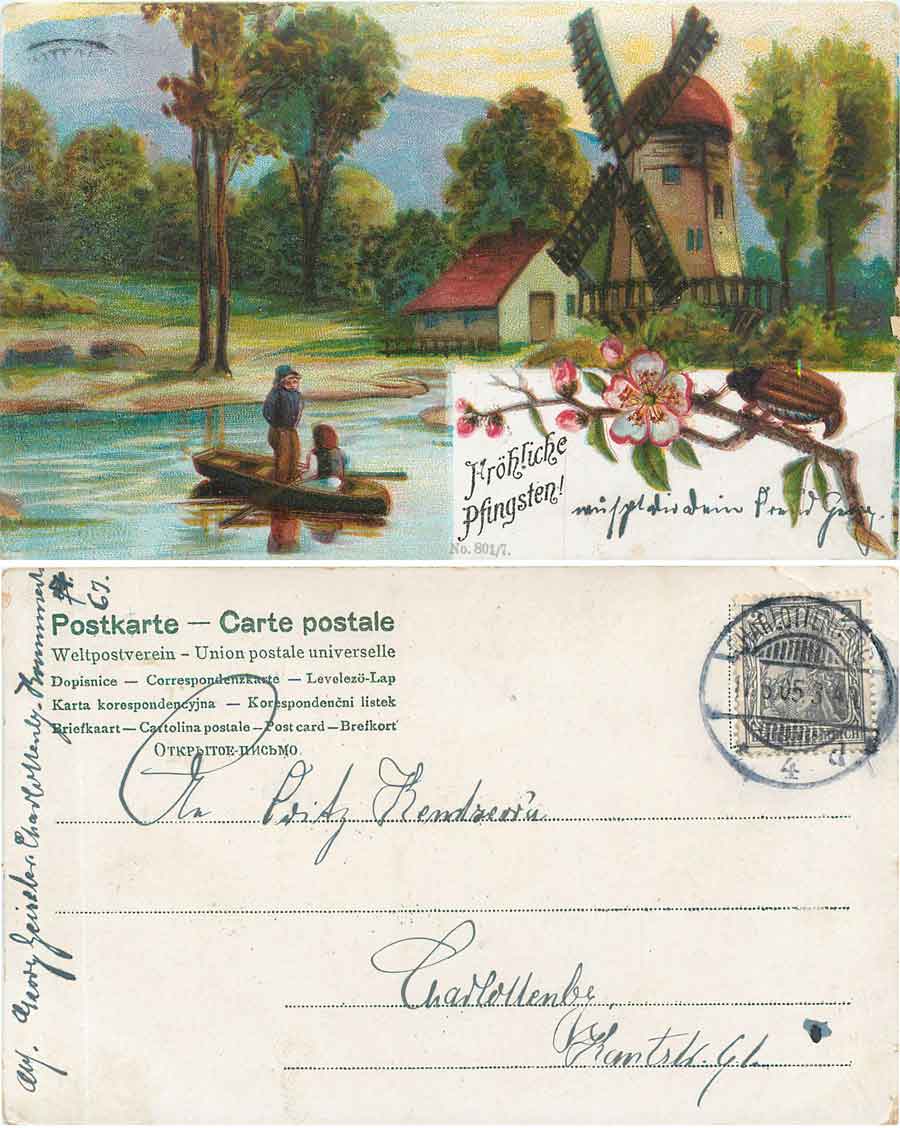 Fröhliche
Pfingsten!
wünscht dir dein Freund Georg.
No. 801/7.
Postkarte — Carte postale
Weltpostverein – Union postale universelle
Dopisnice — Correspondenzkarte — Levelezö-Lap
Karta korespondencyjna — Korespondenčni listek
Briefkaart — Cartolina postale — Post card — Brefkort
Открытое письмо.
CHARLOTTENBURG
4 d
An Fritz
Charlottenbg.
Kantstr.
Georg Charlottenbg.